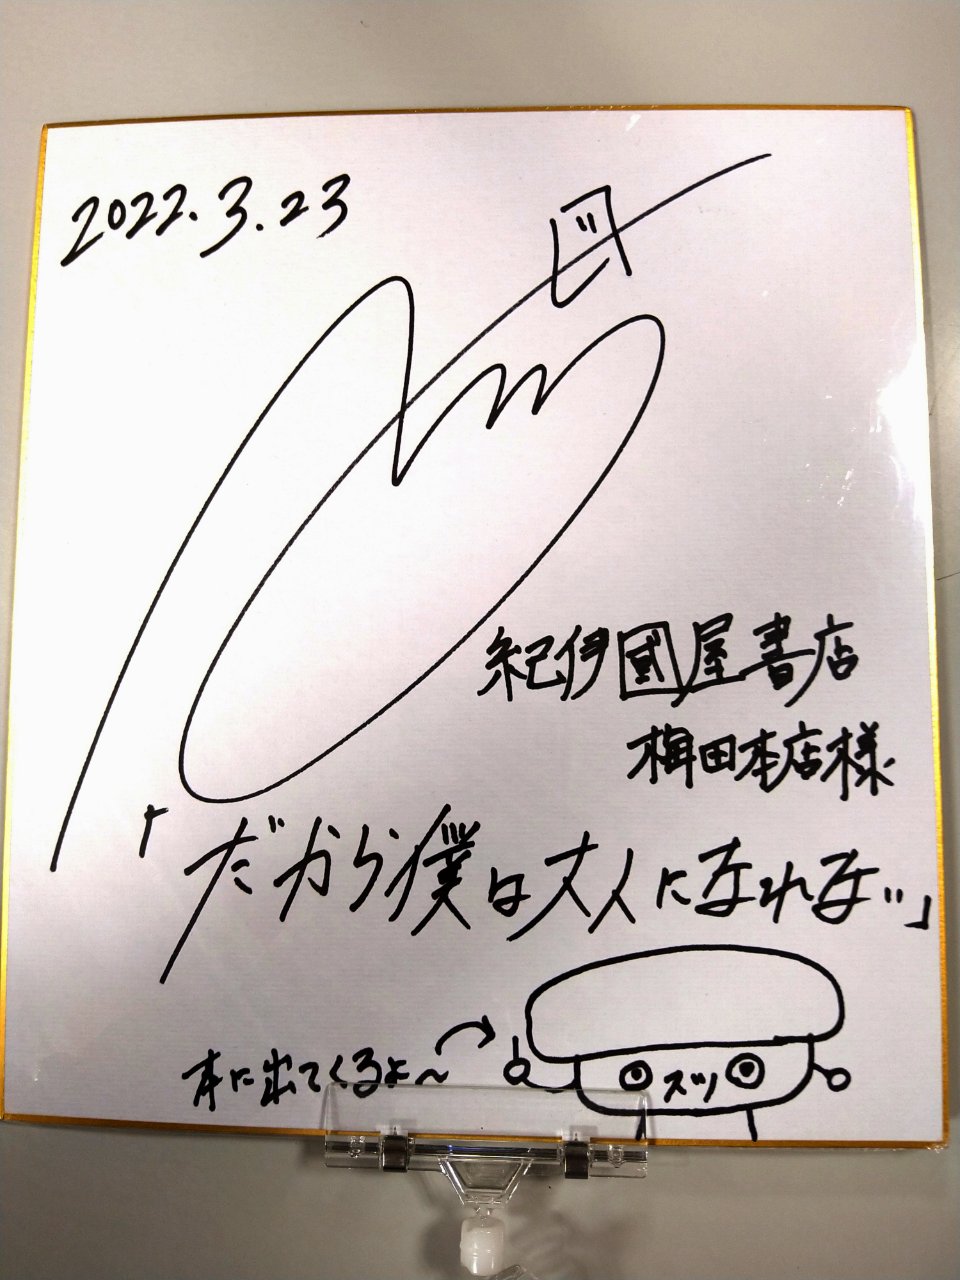 2022.3.23
紀伊國屋書店
梅田本店様
「だから僕は大人になれない」
本に出てくるよ〜
スッ